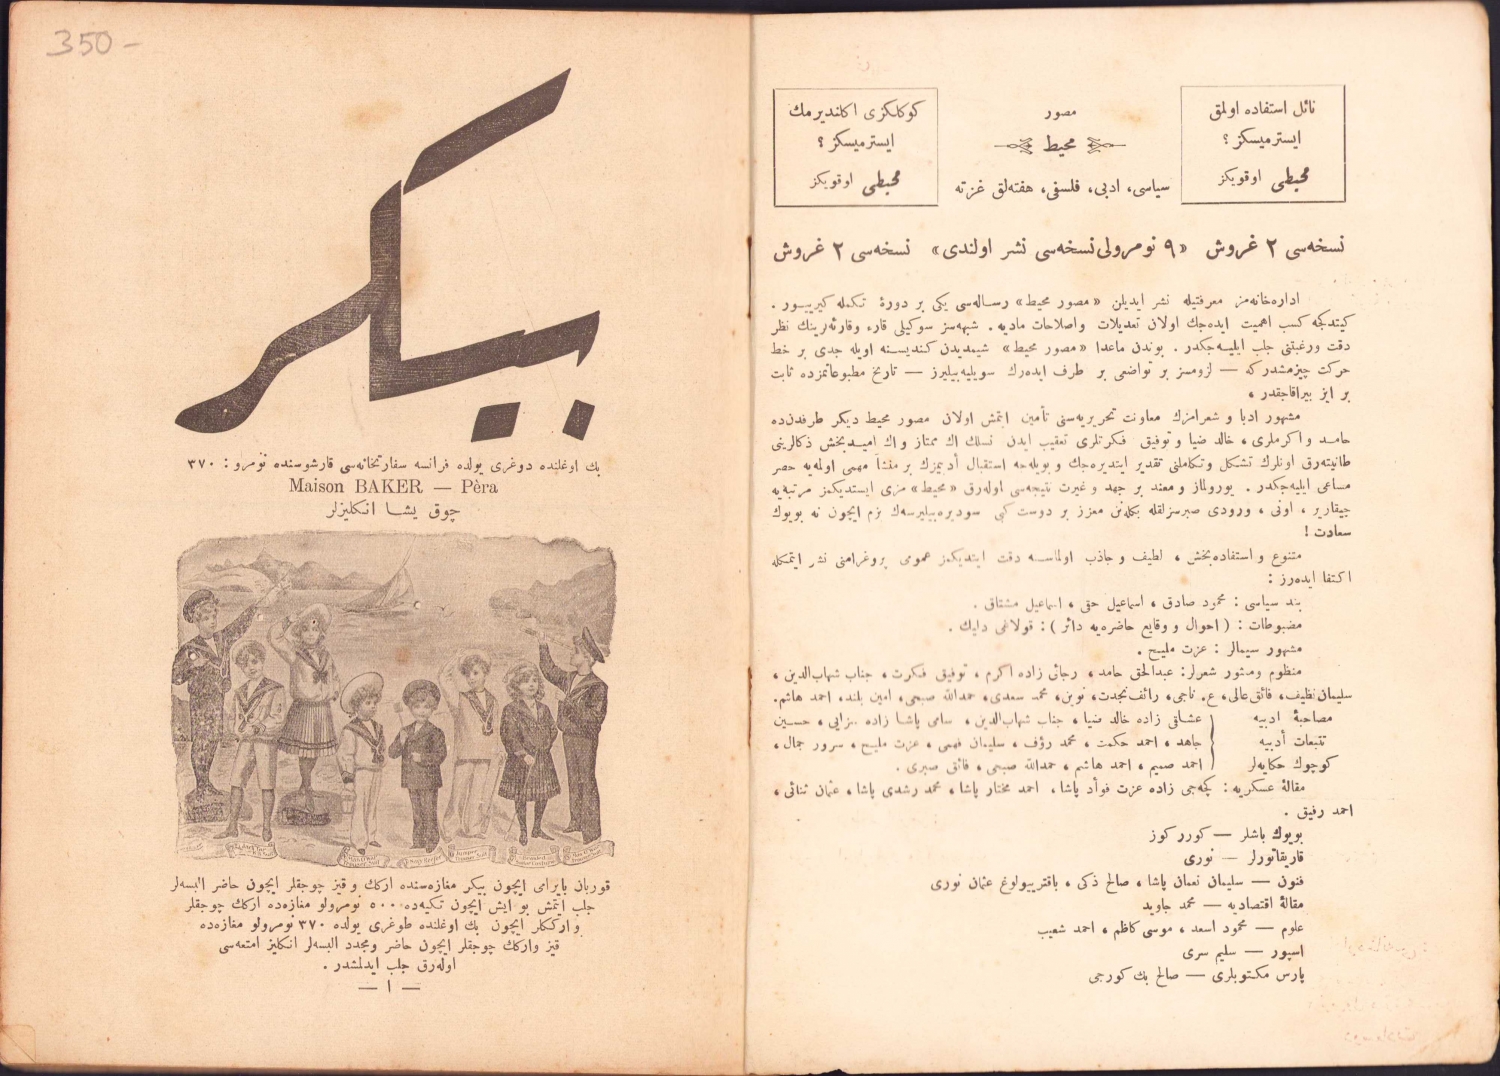 نائل استفاده اولمق
ایسترمیسکز ؟
محیطی اوقویکز
مصور
محیط
سیاسی، ادبی، فلسفی، هفته‌لق غزته
کوکلکزی اکلندیرمك
ایسترمیسکز ؟
محیطی اوقویکز
نسخه‌سی ٢ غروش «٩ نومرولی نسخه‌سی نشر اولندی» نسخه‌سی ٢ غروش
اداره‌خانه‌مز معرفتیله نشر ایدیلن «مصور محیط» رساله‌سی یکی بر دورهٔ تکمله کیرییور .
کیتدکجه کسب اهمیت ایده‌جك اولان تعدیلات واصلاحات مادیه . شبهه‌سز سوکیلی قارء وقارئه‌لرینك نظر
دقت ورغبتنی جلب ایلیه‌جکدر . بوندن ماعدا «مصور محیط» شیمدیدن کندیسنه اویله جدی بر خط
حرکت چیزمشدرکه — لزومسز بر تواضعی بر طرف ایده‌رك سویلیه‌بیلیرز — تاریخ مطبوعاتمزده ثابت
بر ایز بیراقاجقدر .
مشهور ادبا و شعرامزك معاونت تحریریه‌سنی تأمین ایتمش اولان مصور محیط دیکر طرفدن‌ده
حامد و اکرملری ، خالد ضیا و توفیق فکرتلری تعقیب ایدن نسلك اك ممتاز و اك امیدبخش ذکالرینی
طانیته‌رق اونلرك تشکل وتکاملنی تقدیر ایتدیره‌جك و بویله‌جه استقبال أدبیمزك بر منشأ مهمی اولمه‌یه حصر
مساعی ایلیه‌جکدر . یورولماز و معند بر جهد و غیرت نتیجه‌سی اوله‌رق «محیط» مزی ایستدیکمز مرتبه‌یه
چیقاریر ، اونی ، ورودی صبرسزلقله بکله‌نن معزز بر دوست کبی سودیره‌بیلیرسه‌ك بزم ایچون نه بویوك
سعادت !
متنوع و استفاده‌بخش ، لطیف و جاذب اولماسنه دقت ایتدیکمز عمومی پروغرامنی نشر ایتمکله
اکتفا ایده‌رز :
بند سیاسی : محمود صادق ، اسماعیل حقی ، اسماعیل مشتاق .
مضبوطات : ( احوال و وقایع حاضره‌یه دائر ) : قولاغی دلیك .
مشهور سیمالر : عزت ملیح .
منظوم ومنثور شعرلر: عبدالحق حامد ، رجائی زاده اکرم ، توفیق فکرت ، جناب شهاب‌الدین ،
سلیمان نظیف، فائق عالی، ع. ناجی، رائف نجدت، نوین، محمد سعدی، حمدالله صبحی، امین بلند، احمد هاشم.
مصاحبهٔ ادبیه
تتبعات أدبیه
کوچوك حکایه‌لر
عشاقی زاده خالد ضیا ، جناب شهاب‌الدین ، سامی پاشا زاده سزایی ، حسین
جاهد ، احمد حکمت ، محمد رؤف ، سلیمان فهمی ، عزت ملیح ، سرور جمال ،
احمد صمیم ، احمد هاشم ، حمدالله صبحی ، فائق صبری .
مقالهٔ عسکریه : کچه‌جی زاده عزت فوأد پاشا ، احمد مختار پاشا ، محمد رشدی پاشا ، عثمان ثنائی ،
احمد رفیق .
بویوك باشلر — کوررکوز
قاریقاتورلر — نوری
فنون — سلیمان نعمان پاشا ، صالح ذکی ، باقترییولوغ عثمان نوری
مقالهٔ اقتصادیه — محمد جاوید
علوم — محمود اسعد ، موسی کاظم ، احمد شعیب
اسپور — سلیم سری
پارس مکتوبلری — صالح بك کورجی
350-
بیکر
بك اوغلنده دوغری یولده فرانسه سفارتخانه‌سی قارشوسنده نومرو : ٣٧٠
Maison BAKER — Pèra
چوق یشا انکلیزلر
قوربان بایرامی ایچون بیکر مغازه‌سنده ارکك و قیز چوجقلر ایچون حاضر البسه‌لر
جلب ایتمش بو ایش ایچون تکیه‌ده ٥٠٠ نومرولو مغازه‌ده ارکك چوجقلر
و ارککلر ایچون بك اوغلنده طوغری یولده ٣٧٠ نومرولو مغازه‌ده
قیز وارکك چوجقلر ایچون حاضر ومجدد البسه‌لر انکلیز امتعه‌سی
اوله‌رق جلب ایدلمشدر .
— ١ —